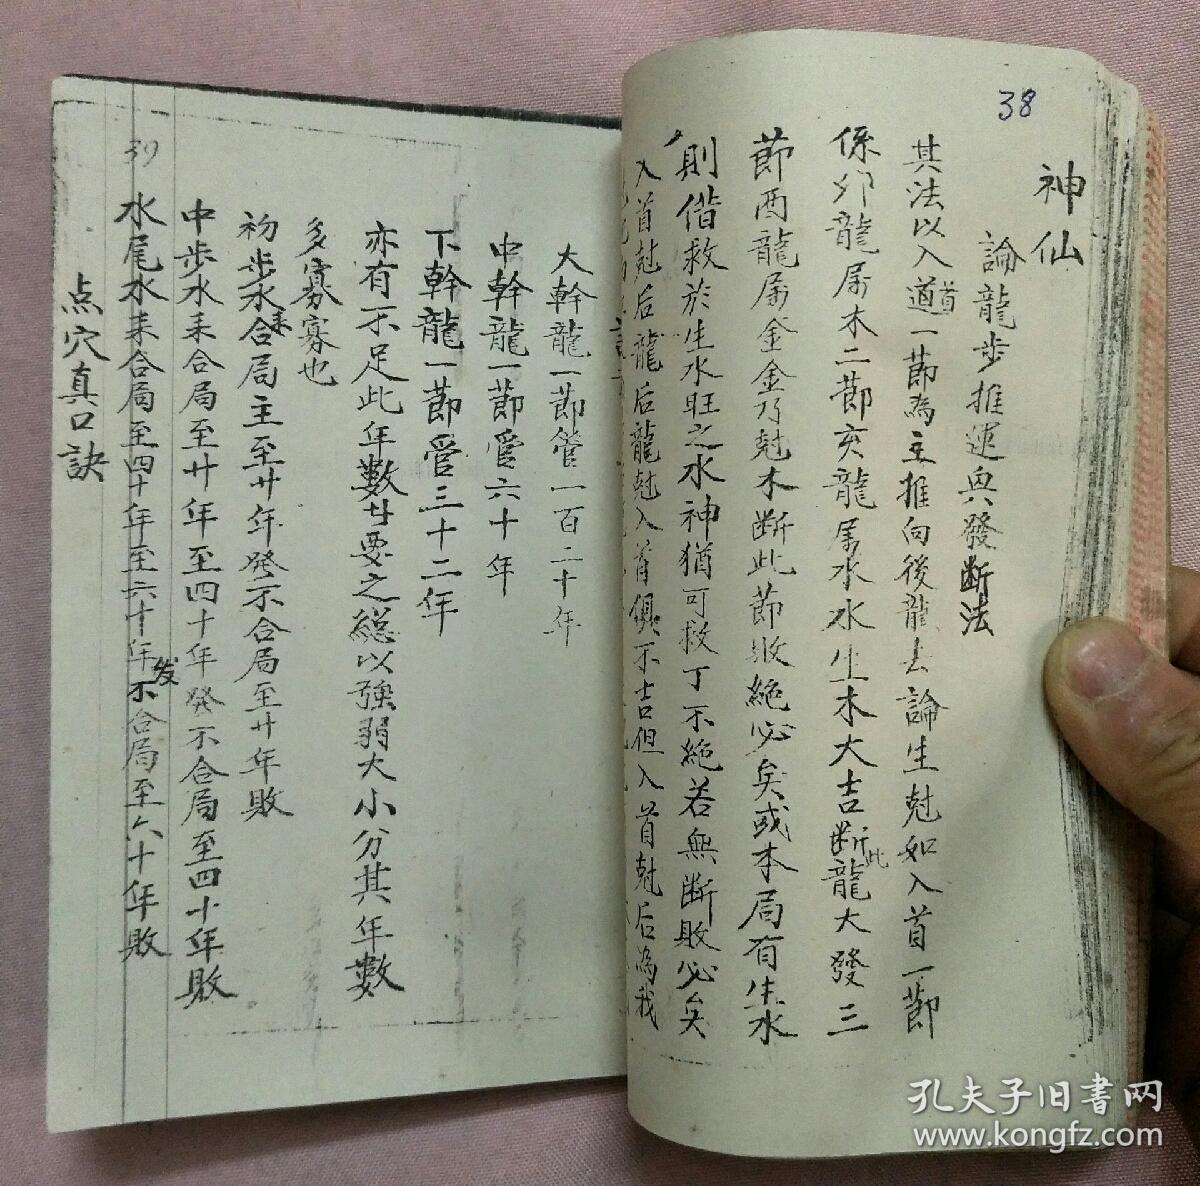 38
神仙
論龍步推運與發断法
其法以入首一節為主推向後龍去論生尅如入首一節
係卯龍屬木二節亥龍属水水生木大吉断此龍大發三
節酉龍屬金金乃尅木断此節敗絕必矣或本局有生水
則借救於生水旺之水神猶可救丁不絕若無断敗必矣
入首尅后龍后龍尅入首俱不吉但入首尅后為我
39
大幹龍一節管一百二十年
中幹龍一節管六十年
下幹龍一節管三十二年
亦有不足此年數廿要之総以強弱大小分其年數
多寡寡也
初步水来合局主至廿年發不合局至廿年敗
中步水耒合局至廿年至四十年發不合局至四十年敗
水尾水耒合局至四十年至六十年发不合局至六十年敗
点穴真口訣
孔夫子旧书网
www.kongfz.com